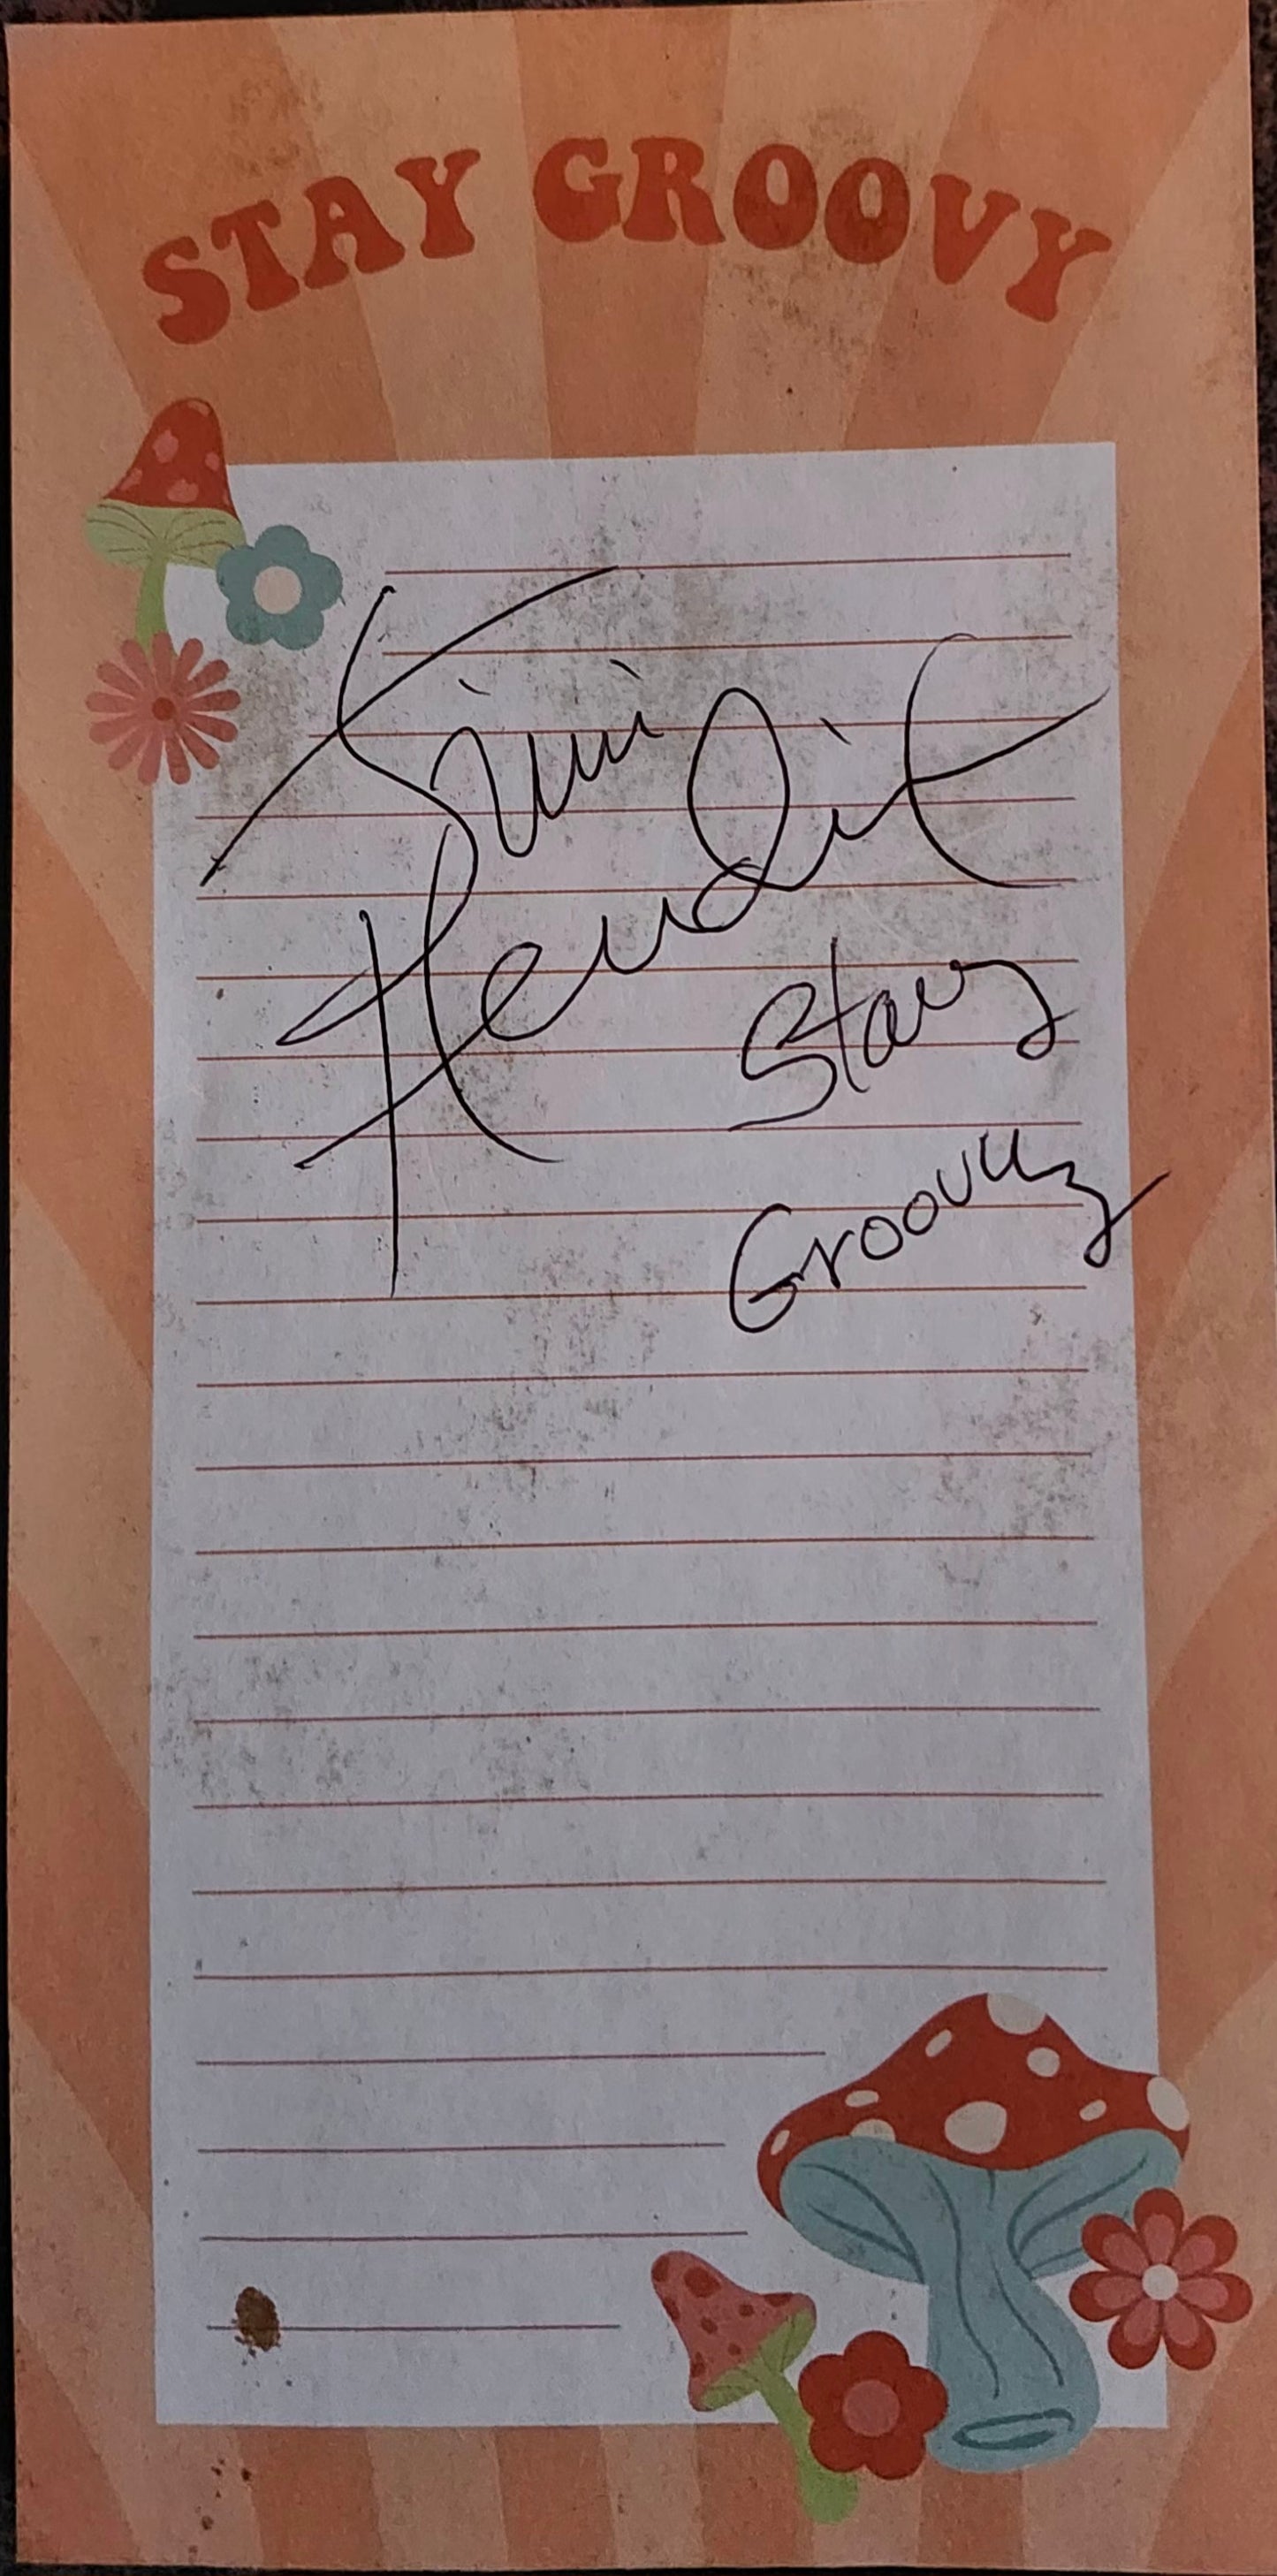 STAY GROOVY
Jimi
Hendrix
Stay
Groovy